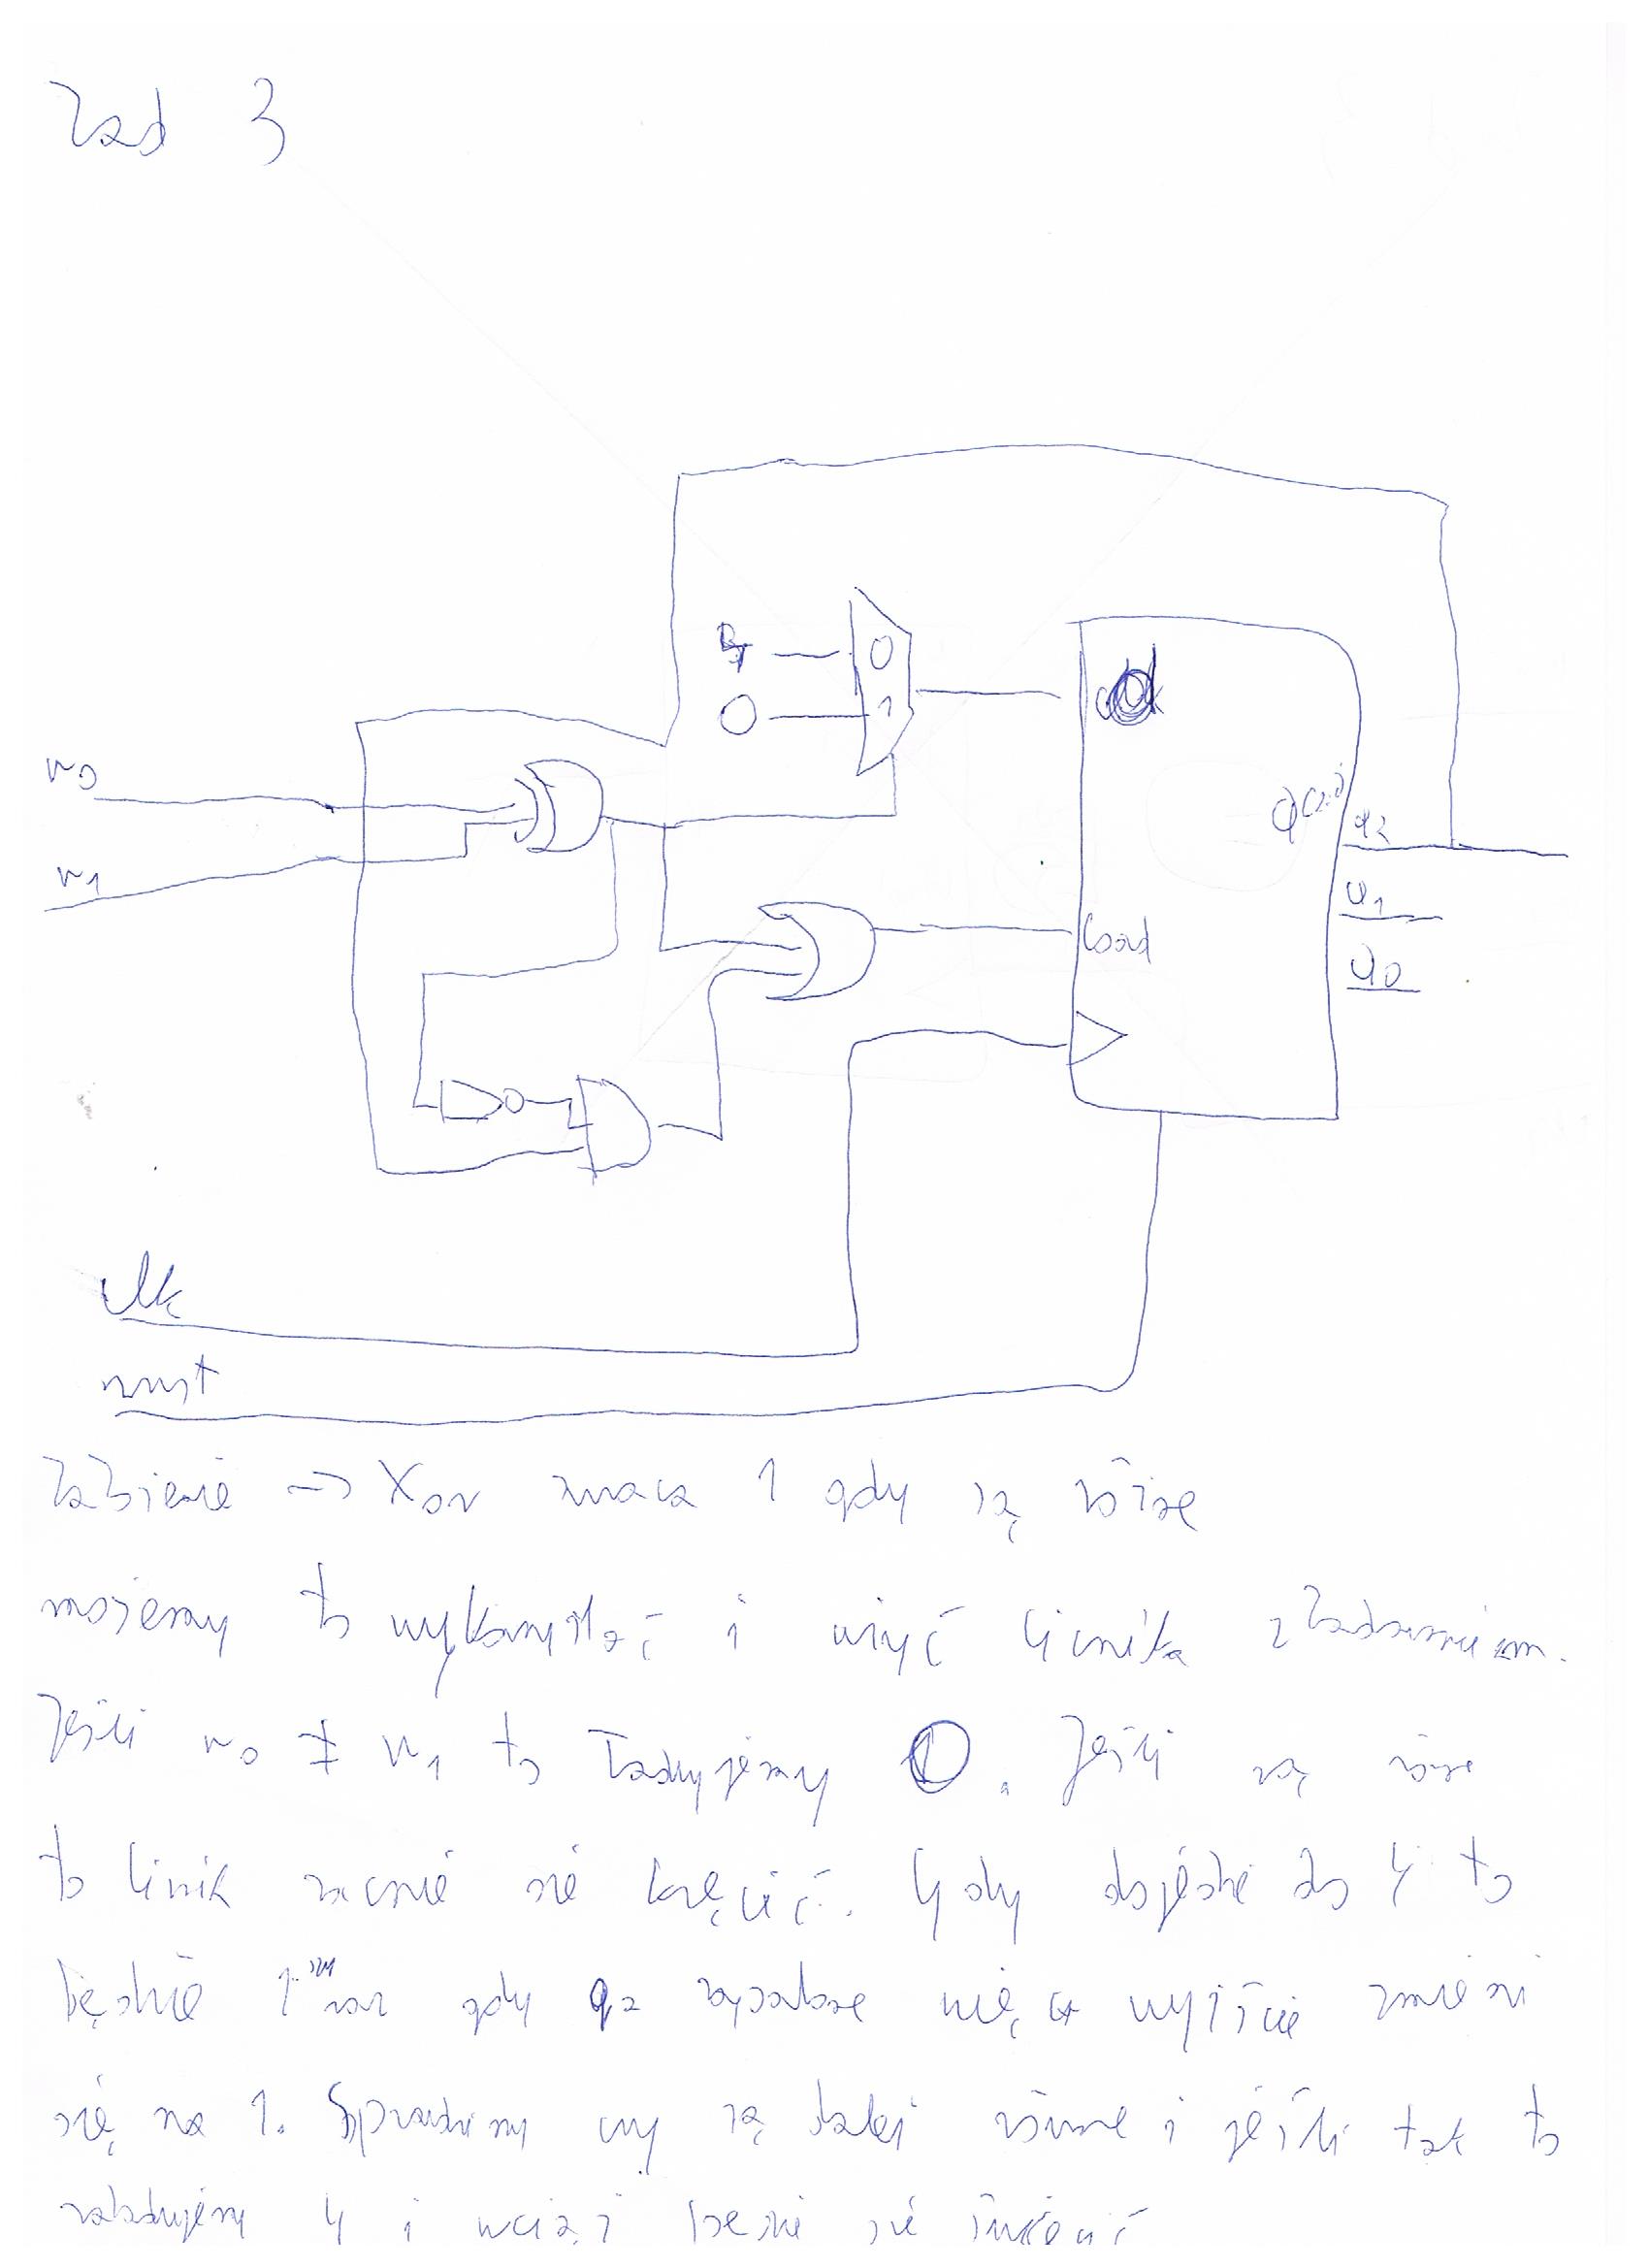 Zad 3
4
0
0
1
w0
w1
q2
q1
q0
load
clk
nrst
Założenie -> Xor zwraca 1 gdy są różne
możemy to wykorzystać i użyć licznika z ładowaniem.
Jeśli w0 ≠ w1 to ładujemy 0. Jeśli są równe
to licznik zacznie się kręcić. Gdy dojdzie do 4 to
będzie 1szy raz gdy q2 zapalone więc wyjście zmieni
się na 1. Sprawdzamy czy są dalej równe i jeśli tak to
załadujemy 4 i wciąż będzie się świecić